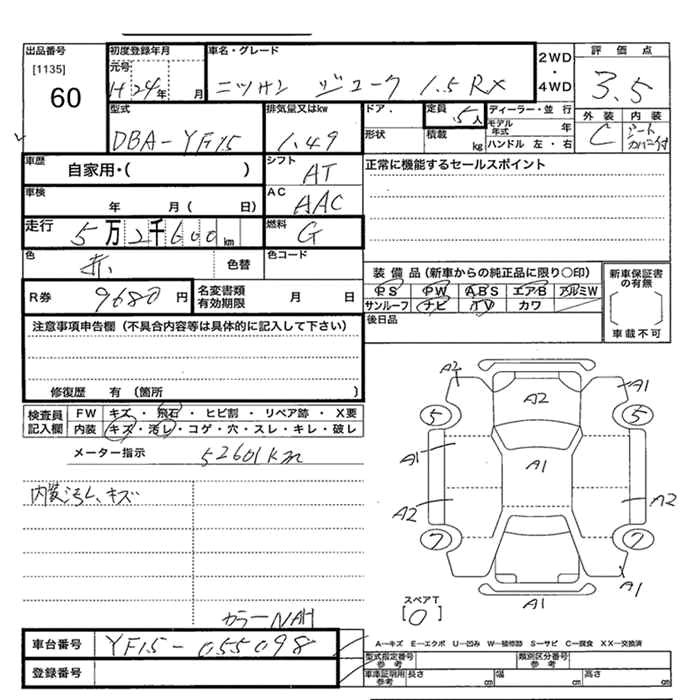 出品番号
[1135]
60
初度登録年月
元号
H24年 月
車名・グレード
ニッサン ジューク 1.5RX
2WD
・
4WD
評価点
3.5
型式
DBA-YF15
排気量又はkw
1.49
ドア．
形状
定員 5人
積載 kg
ディーラー・並行
モデル年式 年
ハンドル 左・右
外装
C
内装
シートカバー付
車歴
自家用・( )
シフト
AT
正常に機能するセールスポイント
車検
年 月( 日)
AC
AAC
走行
5万2千600km
燃料
G
色
赤
色替
色コード
装備品(新車からの純正品に限り○印)
PS PW ABS エアB アルミW
サンルーフ ナビ TV カワ
新車保証書の有無
車載不可
R券
9680円
名変書類有効期限
月 日
後日品
注意事項申告欄(不具合内容等は具体的に記入して下さい)
修復歴 有(箇所 )
検査員記入欄
FW キズ・飛石・ヒビ割・リペア跡・X要
内装 キズ・汚レ・コゲ・穴・スレ・キレ・破レ
メーター指示
52601km
内装汚レ、キズ
A2
A1
A2
5
5
A1
A1
A2
A2
7
7
A1
A1
スペアT
[0]
カラーNAH
車台番号
YF15-055098
登録番号
A－キズ E－エクボ U－凹み W－補修跡 S－サビ C－腐食 XX－交換済
型式指定番号
参考
類別区分番号
参考
車庫証明用
参考
長さ cm
幅 cm
高さ cm